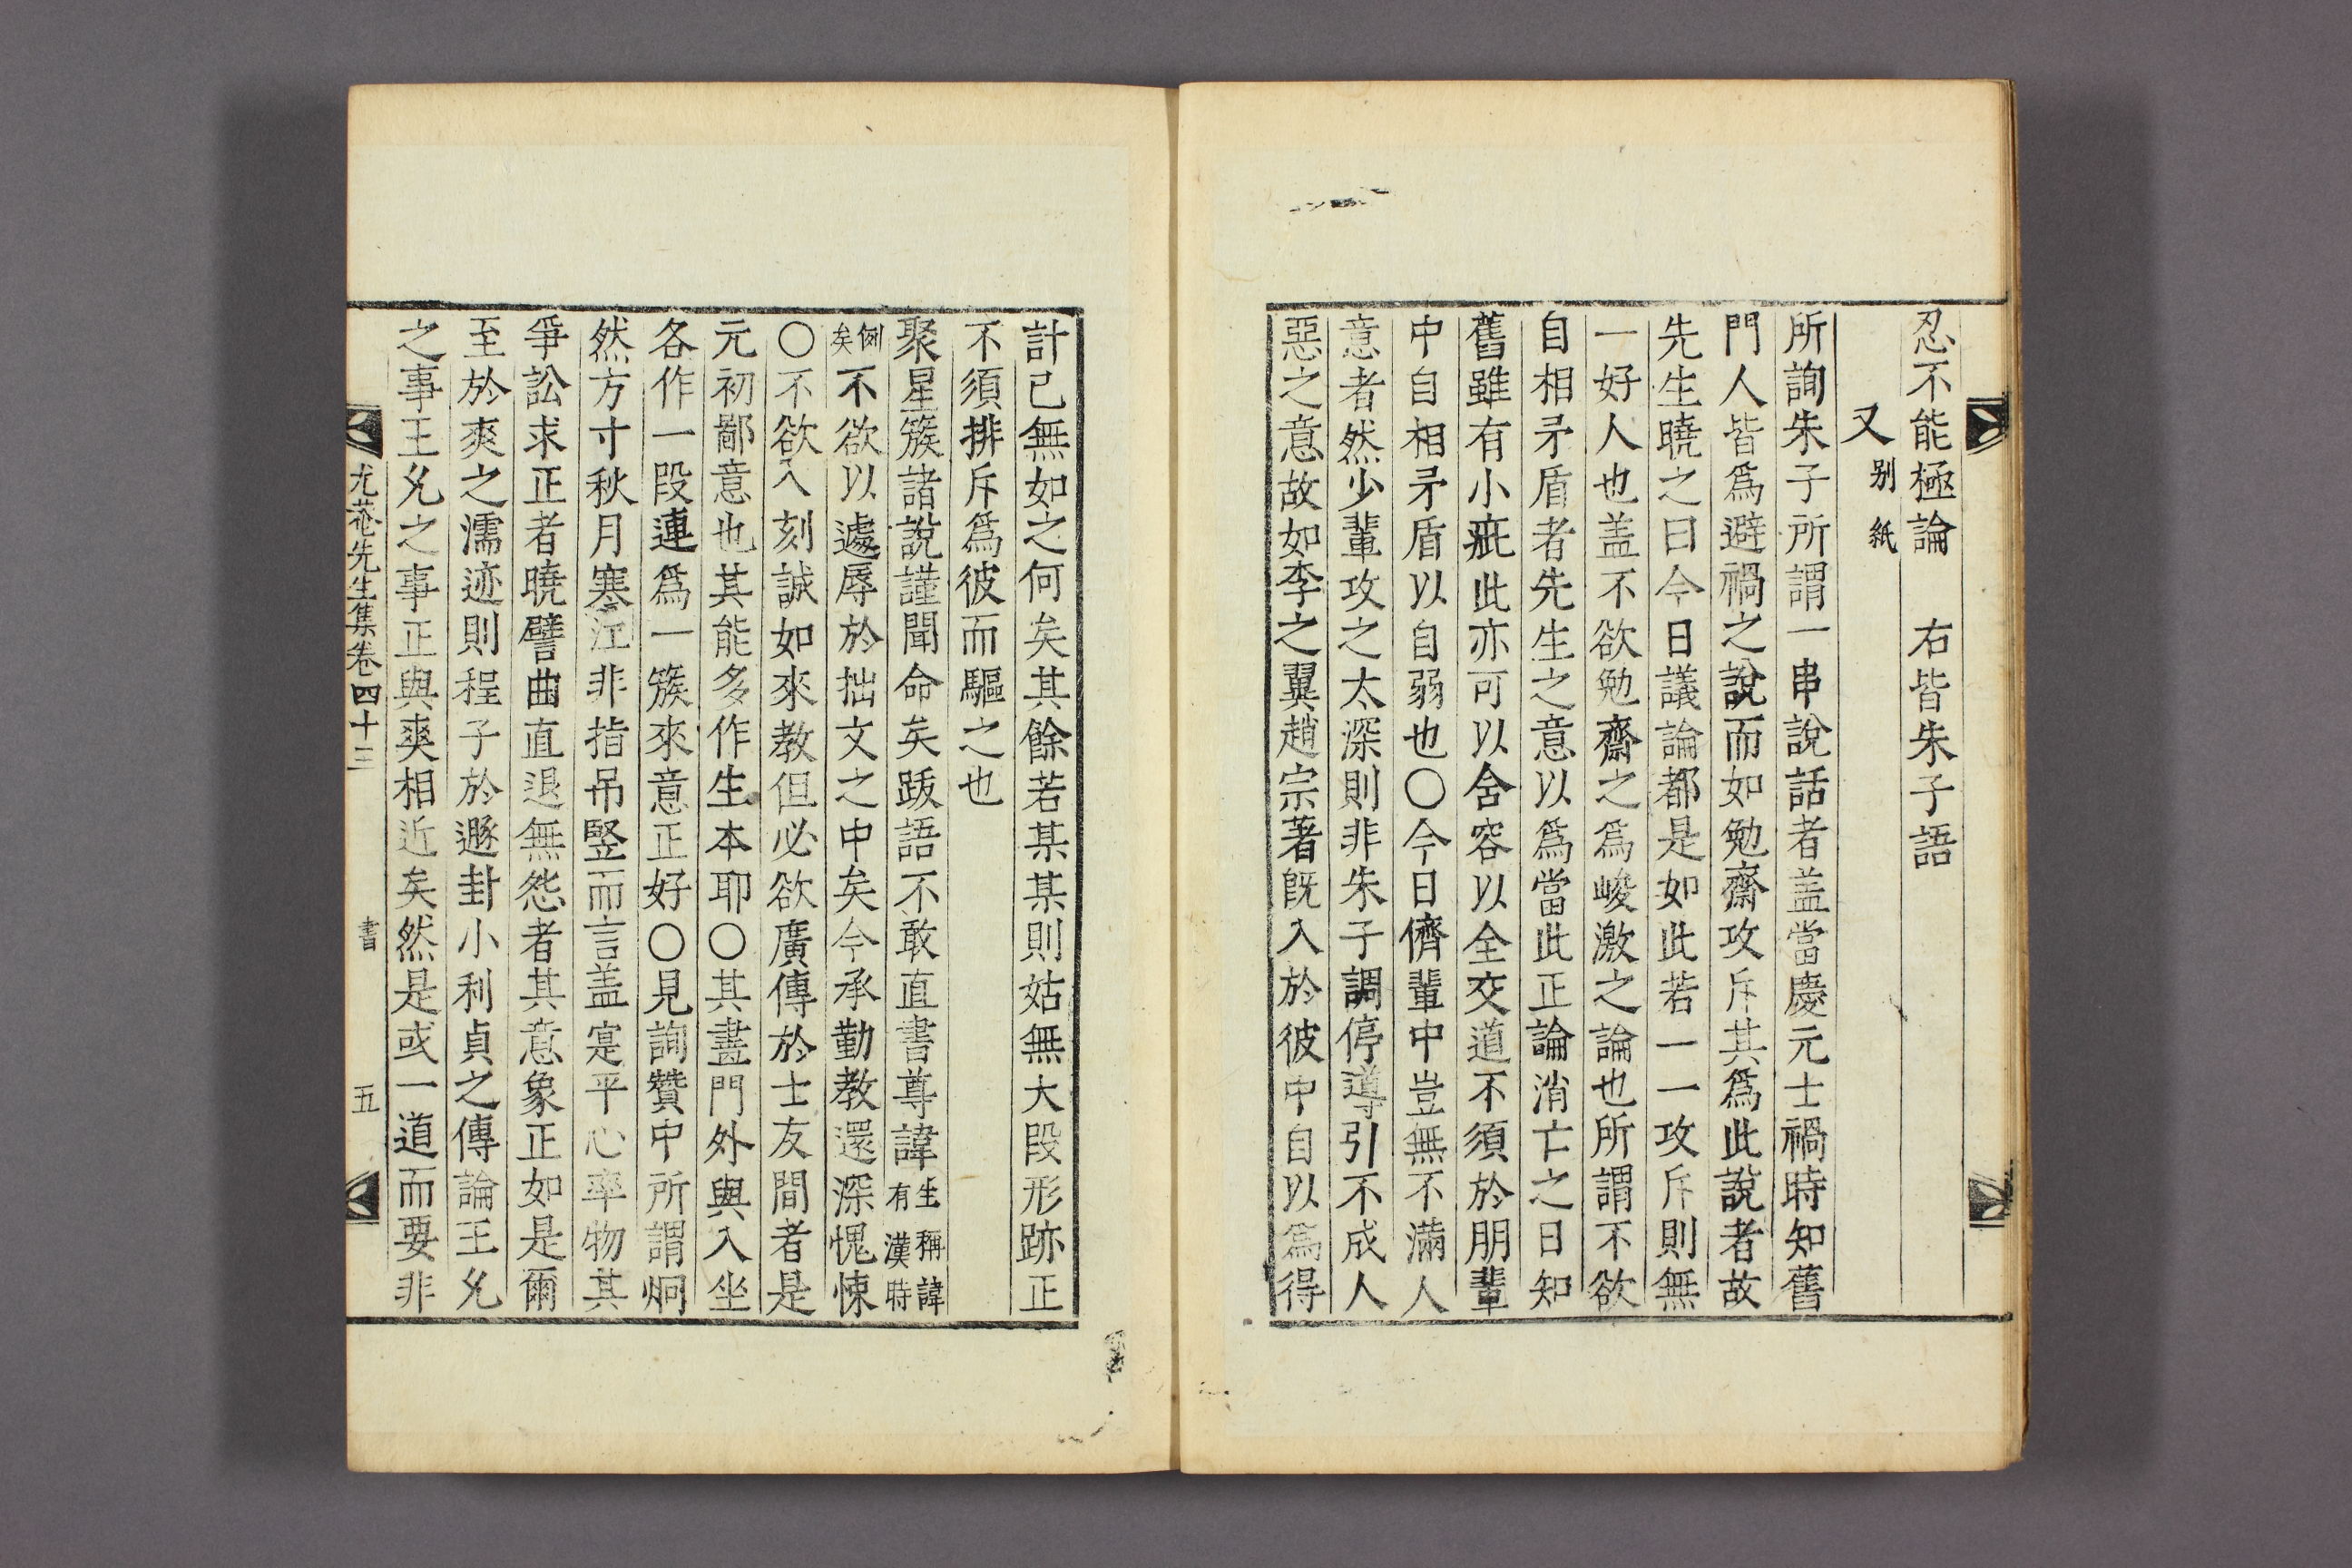 忍不能極論　右皆朱子語
又別紙
所詢朱子所謂一串說話者盖當慶元士禍時知舊
門人皆爲避禍之說而如勉齋攻斥其爲此說者故
先生曉之曰今日議論都是如此若一一攻斥則無
一好人也盖不欲勉齋之爲峻激之論也所謂不欲
自相矛盾者先生之意以爲當此正論消亡之日知
舊雖有小疵此亦可以舍容以全交道不須於朋輩
中自相矛盾以自弱也〇今日儕輩中豈無不滿人
意者然少輩攻之太深則非朱子調停導引不成人
惡之意故如李之翼趙宗著旣入於彼中自以爲得
計已無如之何矣其餘若某某則姑無大段形跡正
不須排斥爲彼而驅之也
聚星簇諸說謹聞命矣跋語不敢直書尊諱生稱諱有漢時
例矣不欲以遽辱於拙文之中矣今承勤教還深愧悚
〇不欲入刻誠如來教但必欲廣傳於士友間者是
元初鄙意也其能多作生本耶〇其畫門外與入坐
各作一段連爲一簇來意正好〇見詢贊中所謂炯
然方寸秋月寒江非指吊竪而言盖寔平心率物其
爭訟求正者曉譬曲直退無怨者其意象正如是爾
至於爽之濡迹則程子於遯封小利貞之傳論王允
之事王允之事正與爽相近矣然是或一道而要非
尤菴先生集卷四十三　書　五